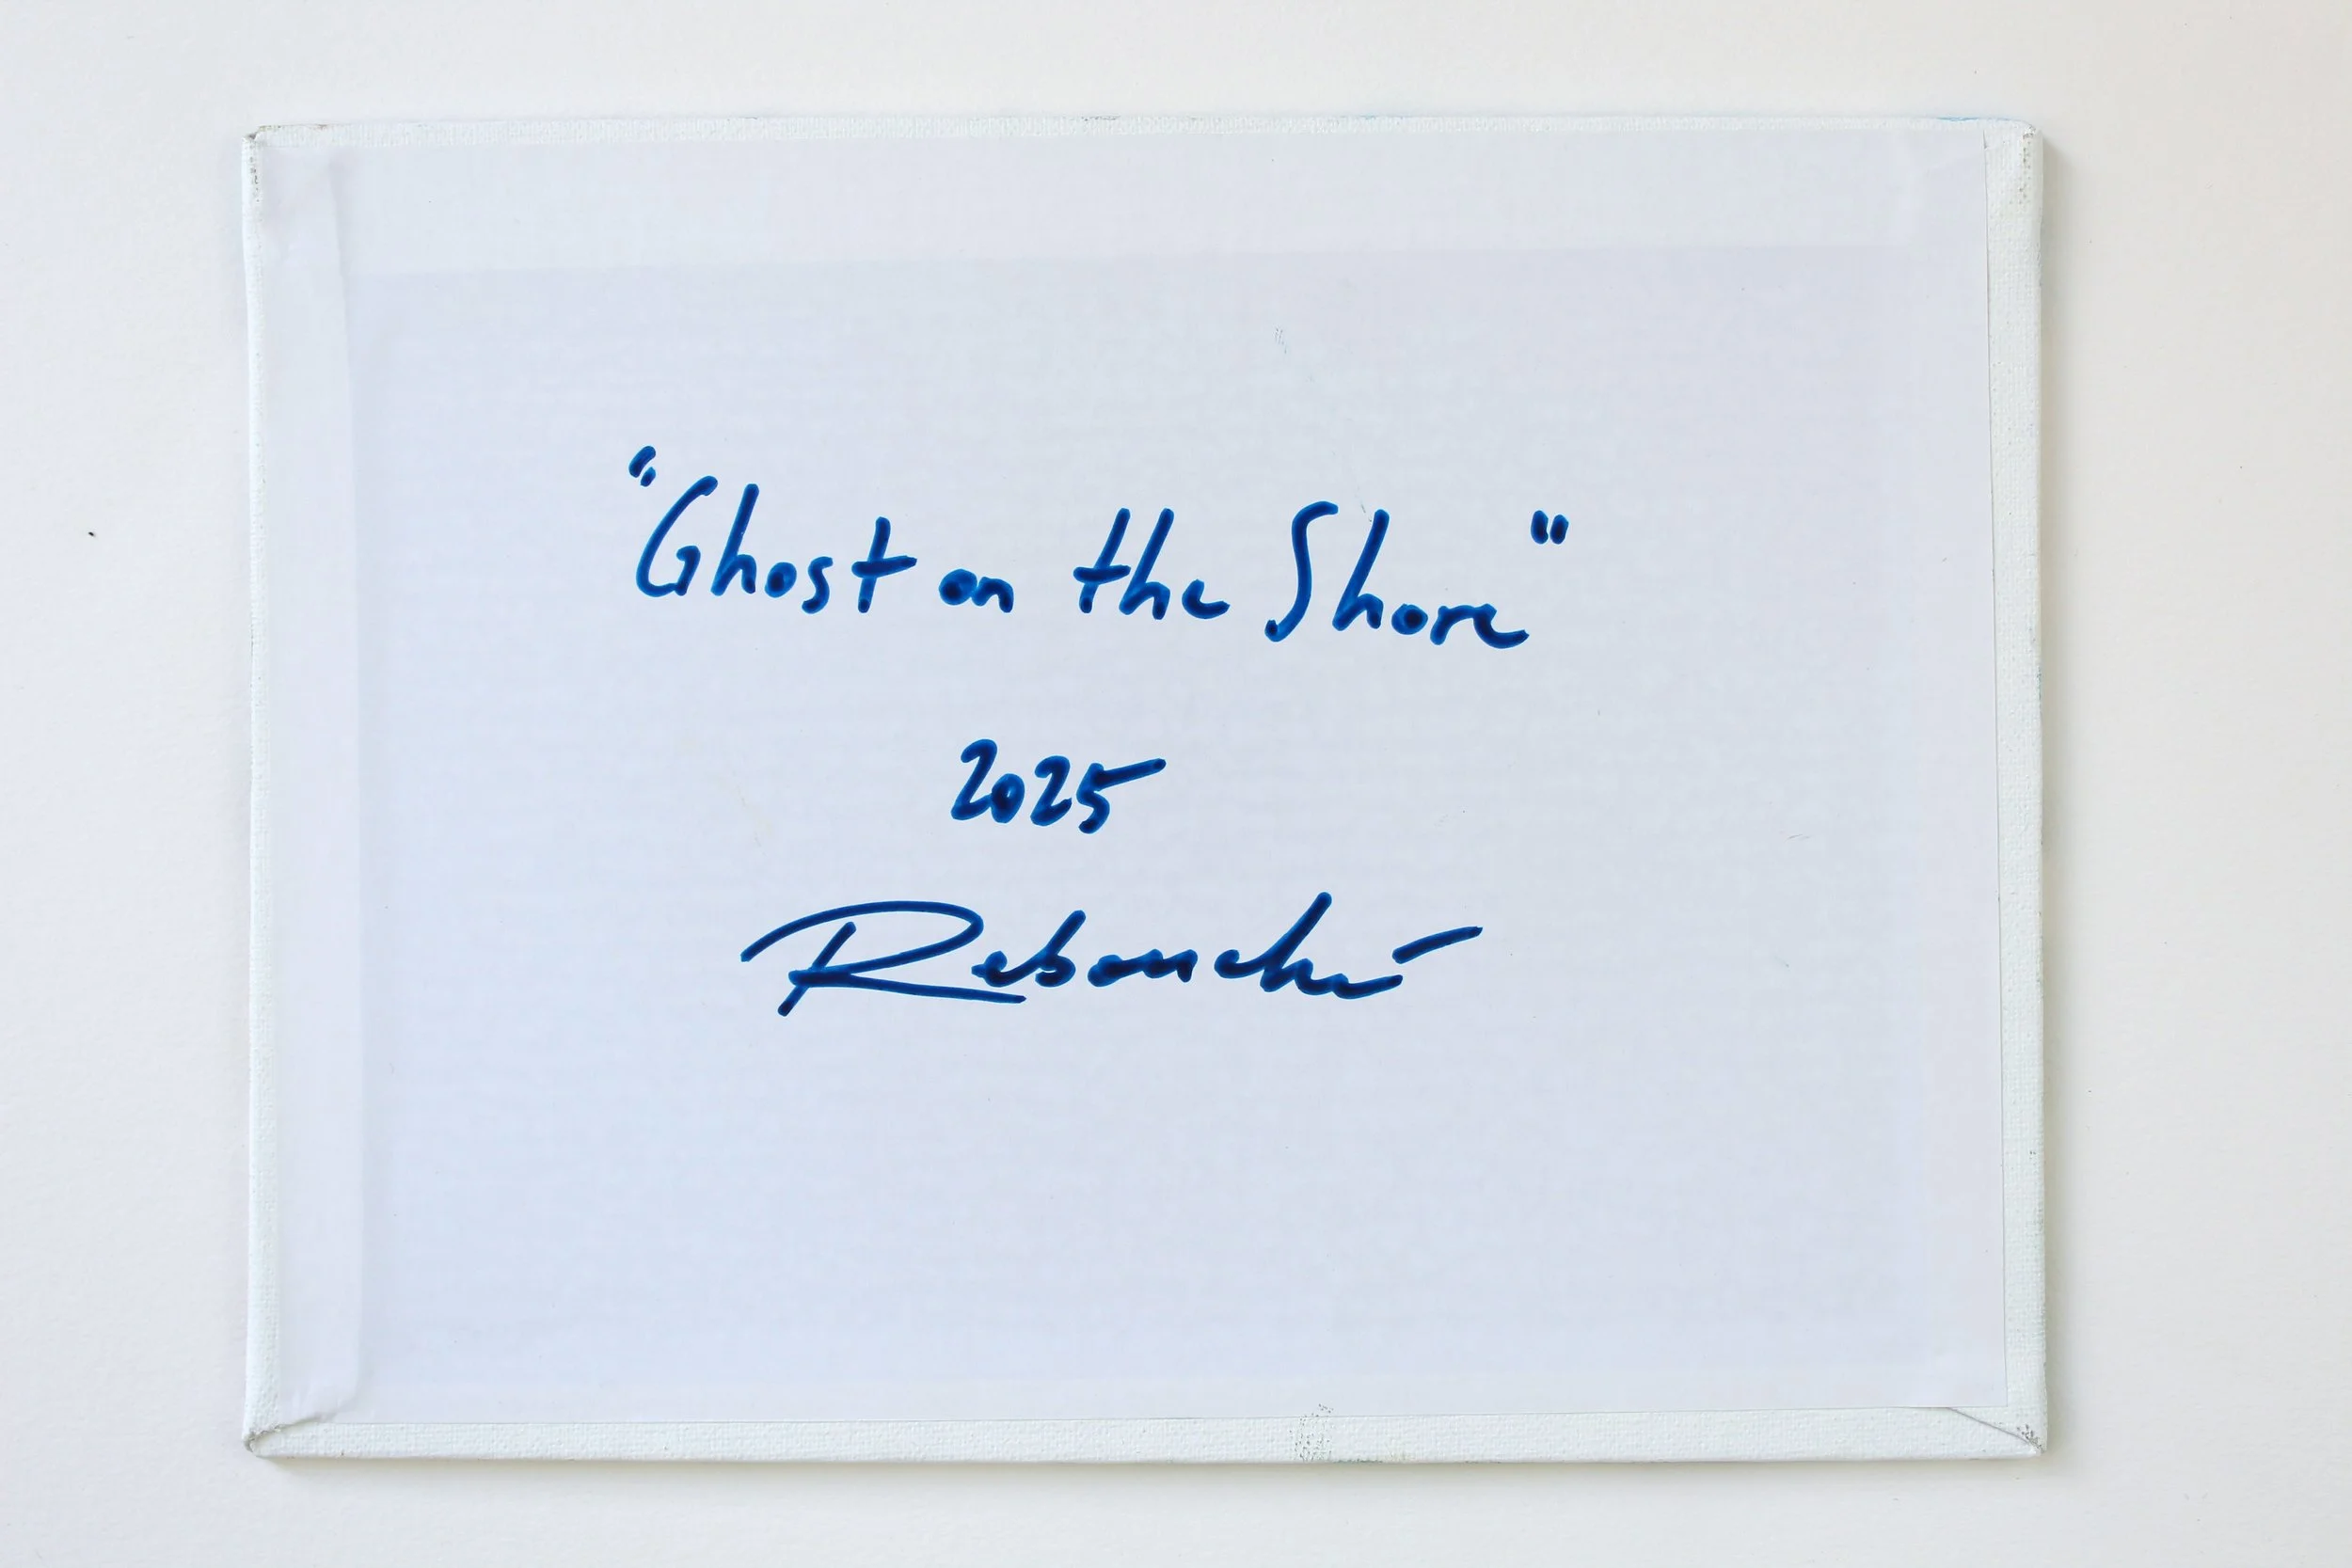 "Ghost on the Shore"
2025
Rebouché